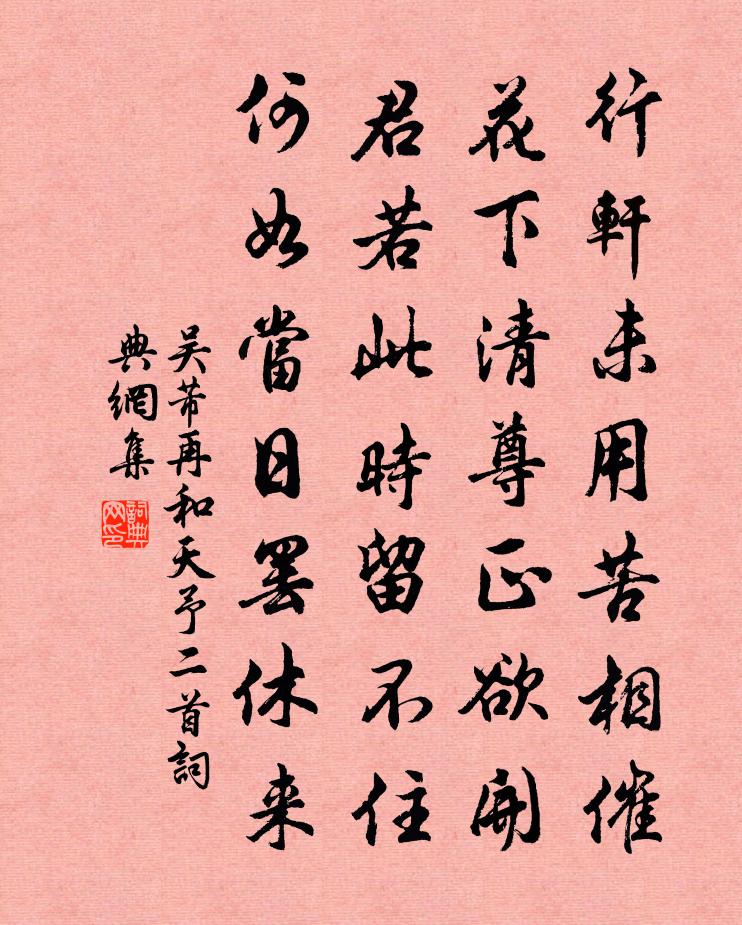 行軒未用苦相催
花下清尊正欲開
君若此時留不住
何如當日罷休来
吴芾再和天予二首詞
典網集
詞典
网印